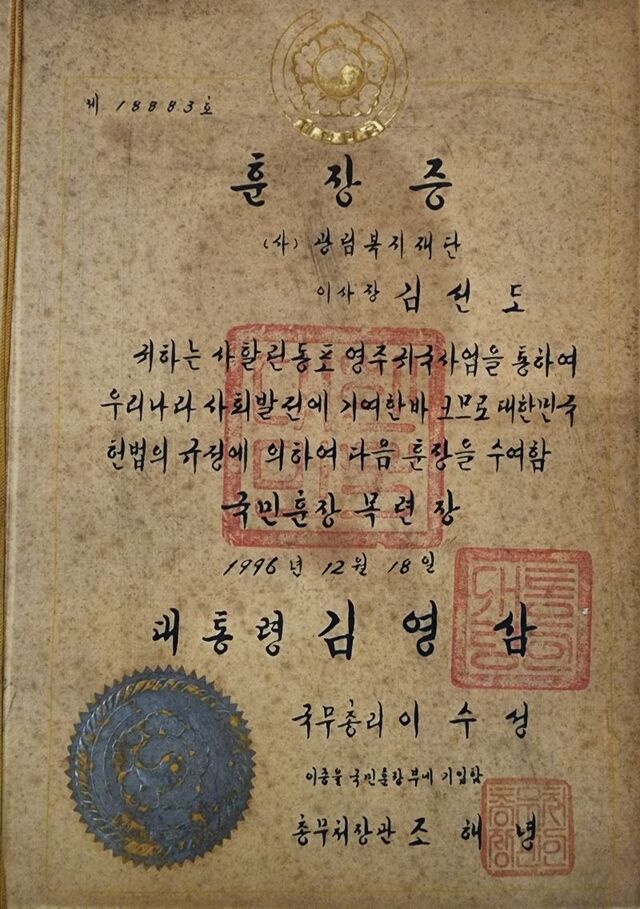 제 18883호
훈장증
(사) 광림복지재단
이사장 김선도
귀하는 사할린동포 영주귀국사업을 통하여
우리나라 사회발전에 기여한바 크므로 대한민국
헌법의 규정에 의하여 다음 훈장을 수여함
국민훈장 목련장
1996년 12월 18일
대통령 김영삼
국무총리 이수성
이증을 국민훈장부에 기입함
총무처장관 조해녕